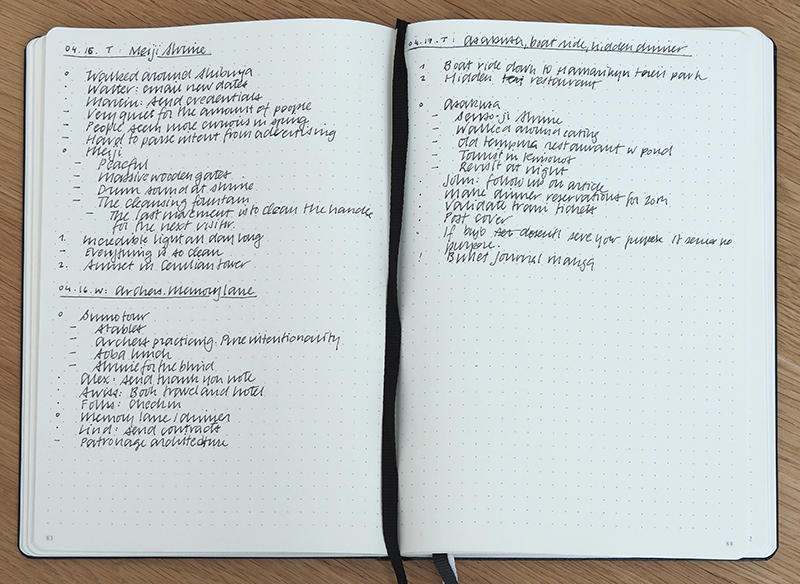 04.15. T: Meiji Shrine
o Walked around Shibuya
· Walter: email new dates
· Marcin: send credentials
– Very quiet for the amount of people
– People seem more curious in spring
– Hard to parse intent from advertising
o Meiji
– Peaceful
– Massive wooden gates.
– Drum sound at shrine
– The cleansing fountain
– The last movement is to clean the handle
for the next visitor.
1. Incredible light all day long
– Everything is so clean
2. Sunset in Cerulian tower
04.16. W: Archers. Memory lane
o Sumo tour
– Stables
– Archers practicing. Pure intentionality
– Soba lunch
– Shrine for the blind
· Alex: Send thank you note
· Swiss: Book travel and hotel
· Folks: Check in
o Memory lane / dinner
· Lind: send contracts
– Patronage architecture
83
04.17. T: Asakusa, boat ride, hidden dinner
1 Boat ride down to Hamarikyu park
2 Hidden restaurant
o Asakusa
– Senso-ji Shrine
– Walked around eating
– Old tempura restaurant w pond
– Tourist in Kimonos
– Revisit at night
· John: follow up on article
· Make dinner reservations for 20th
· Validate train tickets
· Post cover
· If bujo doesn't serve your purpose it serves no
purpose.
! Bullet Journal manga